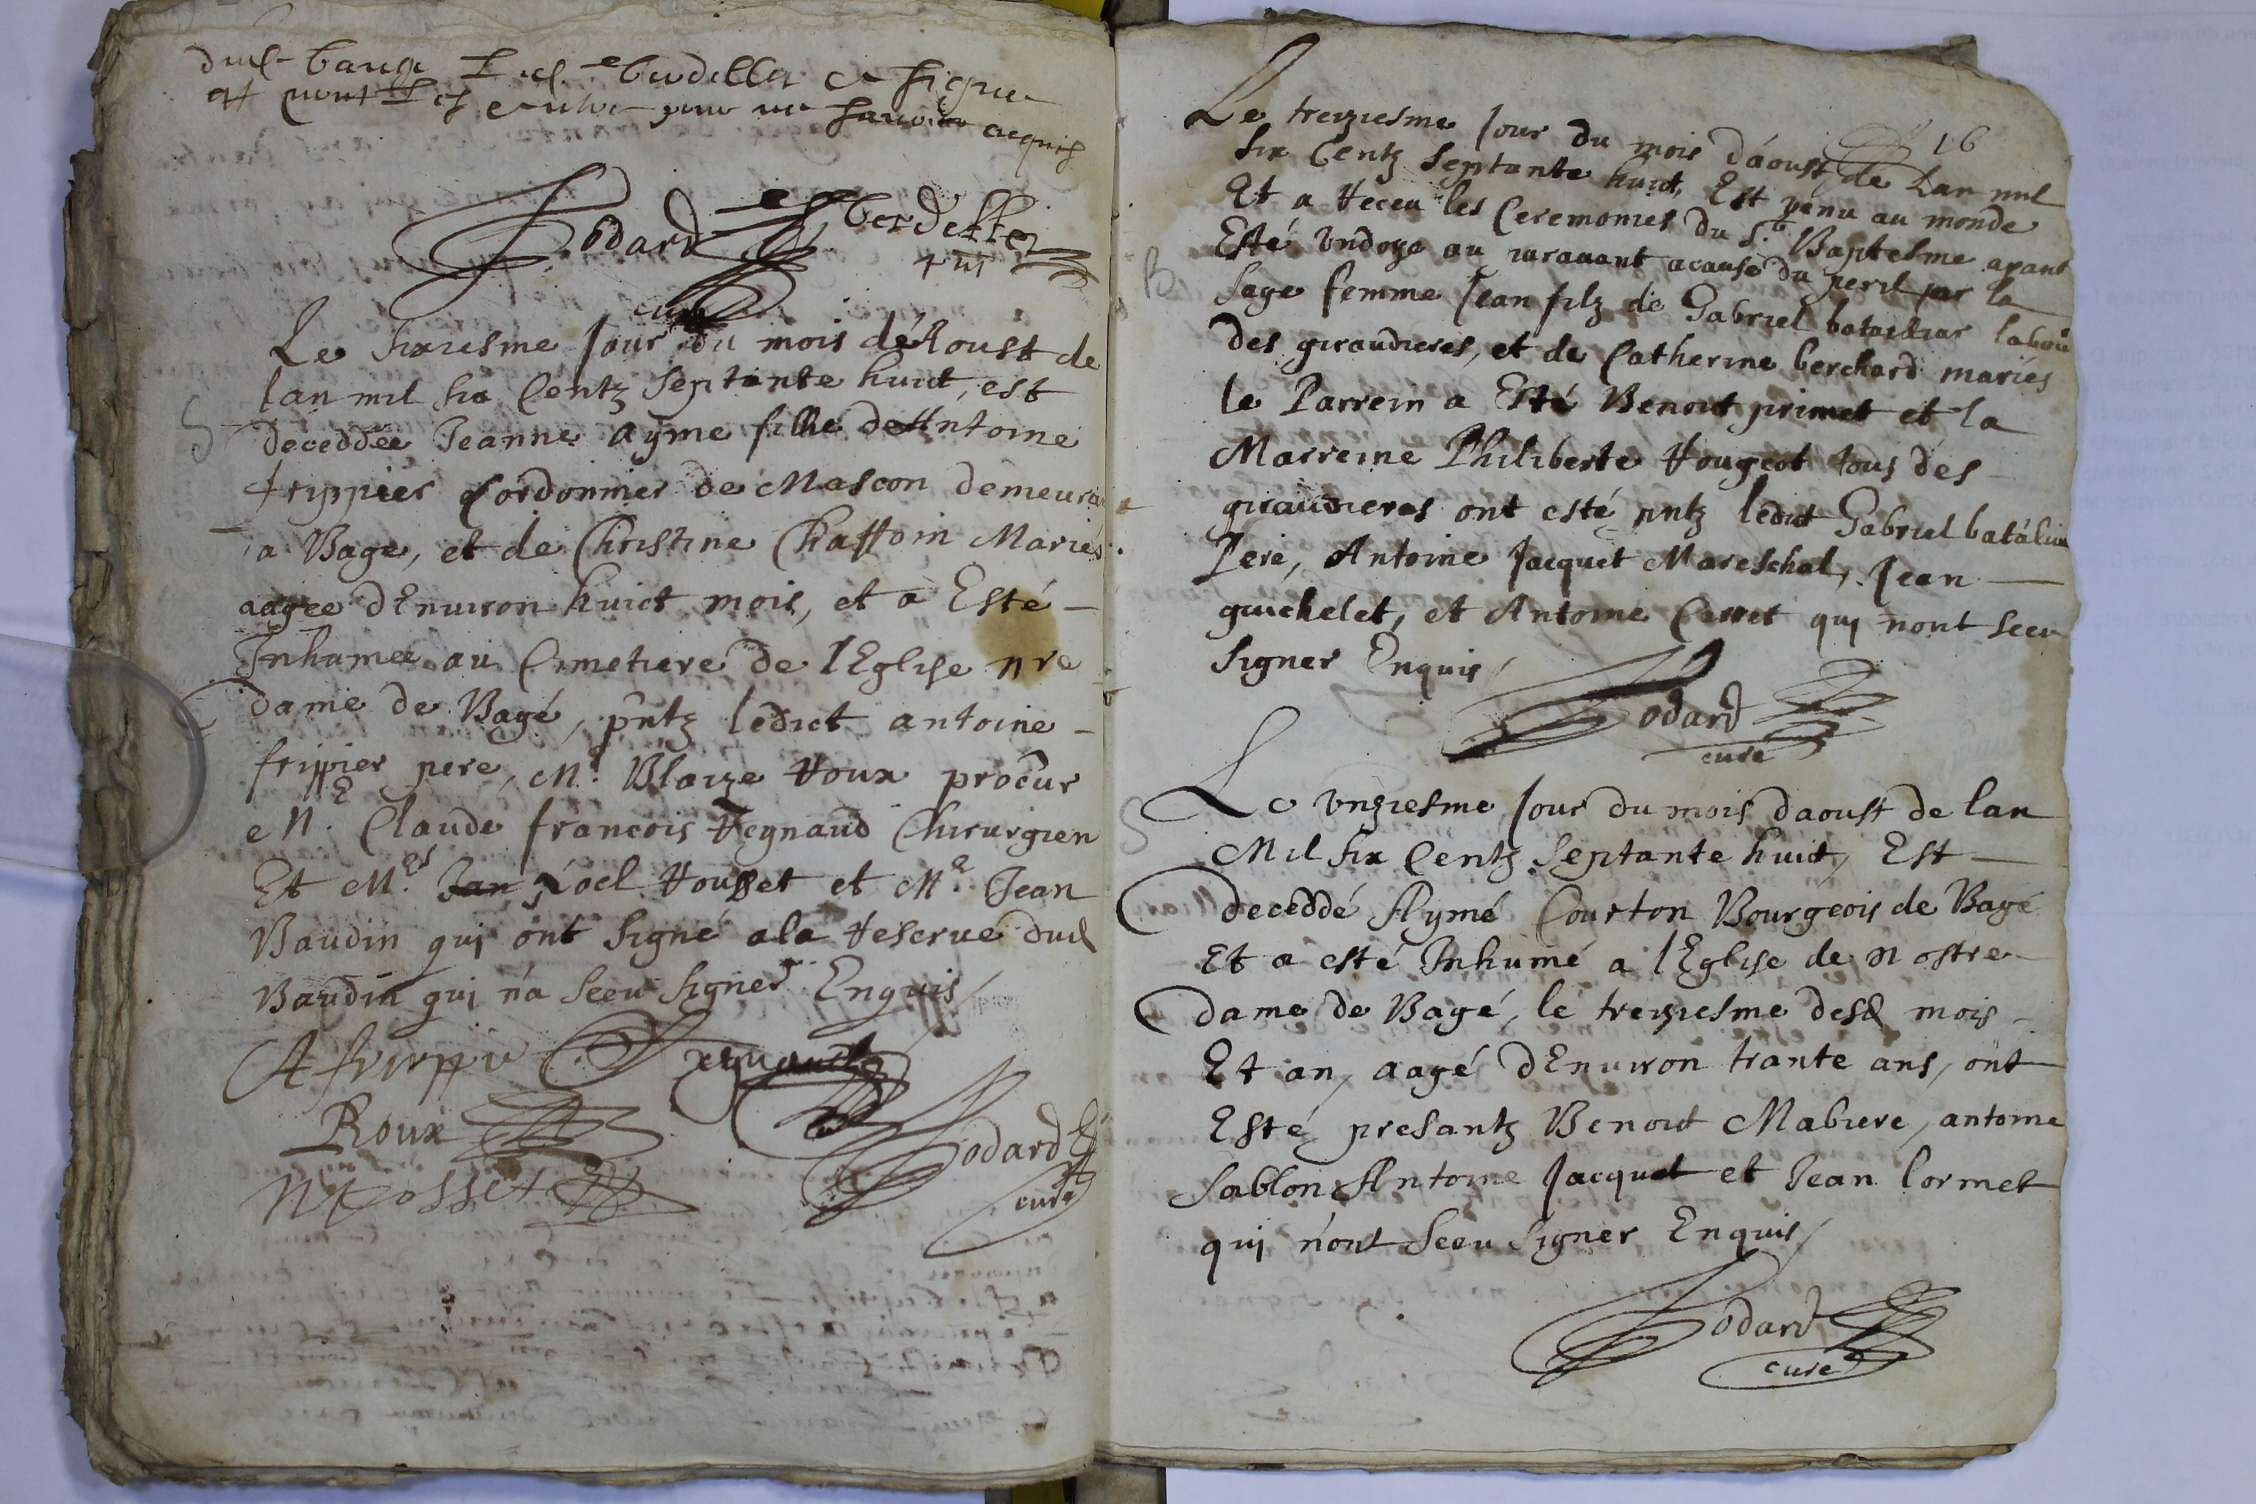 Godard
curé
Le sixiesme Jour du mois d'Aoust de
lan mil six Centz Septante huict, est
deceddée Jeanne ayme fille de Antoine
frippier Cordonnier de Mascon demeura
a Bage, et de Christine Chaffoin Mariés
aagee dEnuiron huict mois, et a Esté
Inhumee au Cimetiere de lEglise nre
dame de Bagé, pntz ledict antoine
frippier pere, Me Blaize Roux procur
Me Claude francois Reynaud Chirurgien
Et Mes Jan Noel Rousset et Me Jean
Baudin qui ont signé ala Reserue dud
Baudin qui n'a sceu signer Enquis
A frippie
Roux
N Rosset
Godard
curé
16
Le treiziesme Jour du mois d'aoust de Lan mil
six Centz Septante huict, Est venu au monde
Et a Receu les Ceremonies du St. Baptesme ayant
Esté Undoye au parauant acause du peril par la
Sage femme Jean filz de Gabriel bataillar labou
des giraudieres, et de Catherine berchard mariés
le Parrein a Esté Benoit primet et la
Marreine Philiberte Vougeot tous des
giraudieres ont esté pntz ledict Gabriel batálliar
Pere, Antoine Jacquet Mareschal, Jean
guichelet, et Antoine Carret qui nont sceu
Signer Enquis
Godard
curé
Le vnziesme Jour du mois daoust de lan
Mil six Centz Septante huict, Est
deceddé Aymé Courton Bourgeois de Bagé
Et a esté Inhumé a lEglise de Nostre
dame de Bagé, le treiziesme desd mois
Et an, aagé dEnuiron trante ans, ont
Esté presantz Benoit Mabiere, antoine
Sablon Antoine Jacquet et Jean lormet
qui n'ont Sceu Signer Enquis
Godard
curé